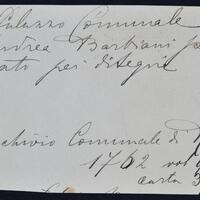 Palazzo Comunale
Andrea Barbiani pa
ato pei disegni
chivio Comunale di R
1762 vol
carta 3